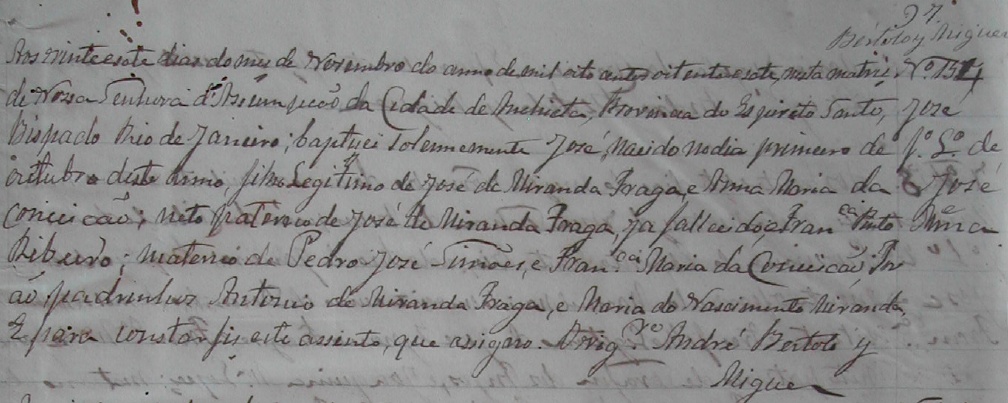 27
Bertolo y Miguez
Aos vinte e sete dias do mes de Novembro do anno de mil oito centos oitenta e sete, nesta matriz Nº 154
de Nossa Senhora d'Assumpção da Cidade de Anchieta, Provincia do Espirito Santo, José
Bispado Rio de Janeiro; baptisei solennemente José, nacido no dia primeiro de fº Lº de
outubro deste anno, filho Legitimo de José de Miranda Fraga, e Anna Maria da José
Conceicão; neto paterno de José de Miranda Fraga, ja fallecido, e Franca Pinto Anna
Ribeiro; materno de Pedro José Simões, e Franca Maria da Conceicão;
ão padrinhos Antonio de Miranda Fraga, e Maria do Nascimento Miranda,
E para constar fis este assento, que assigno. O Vigrº André Bertolo y
Miguez